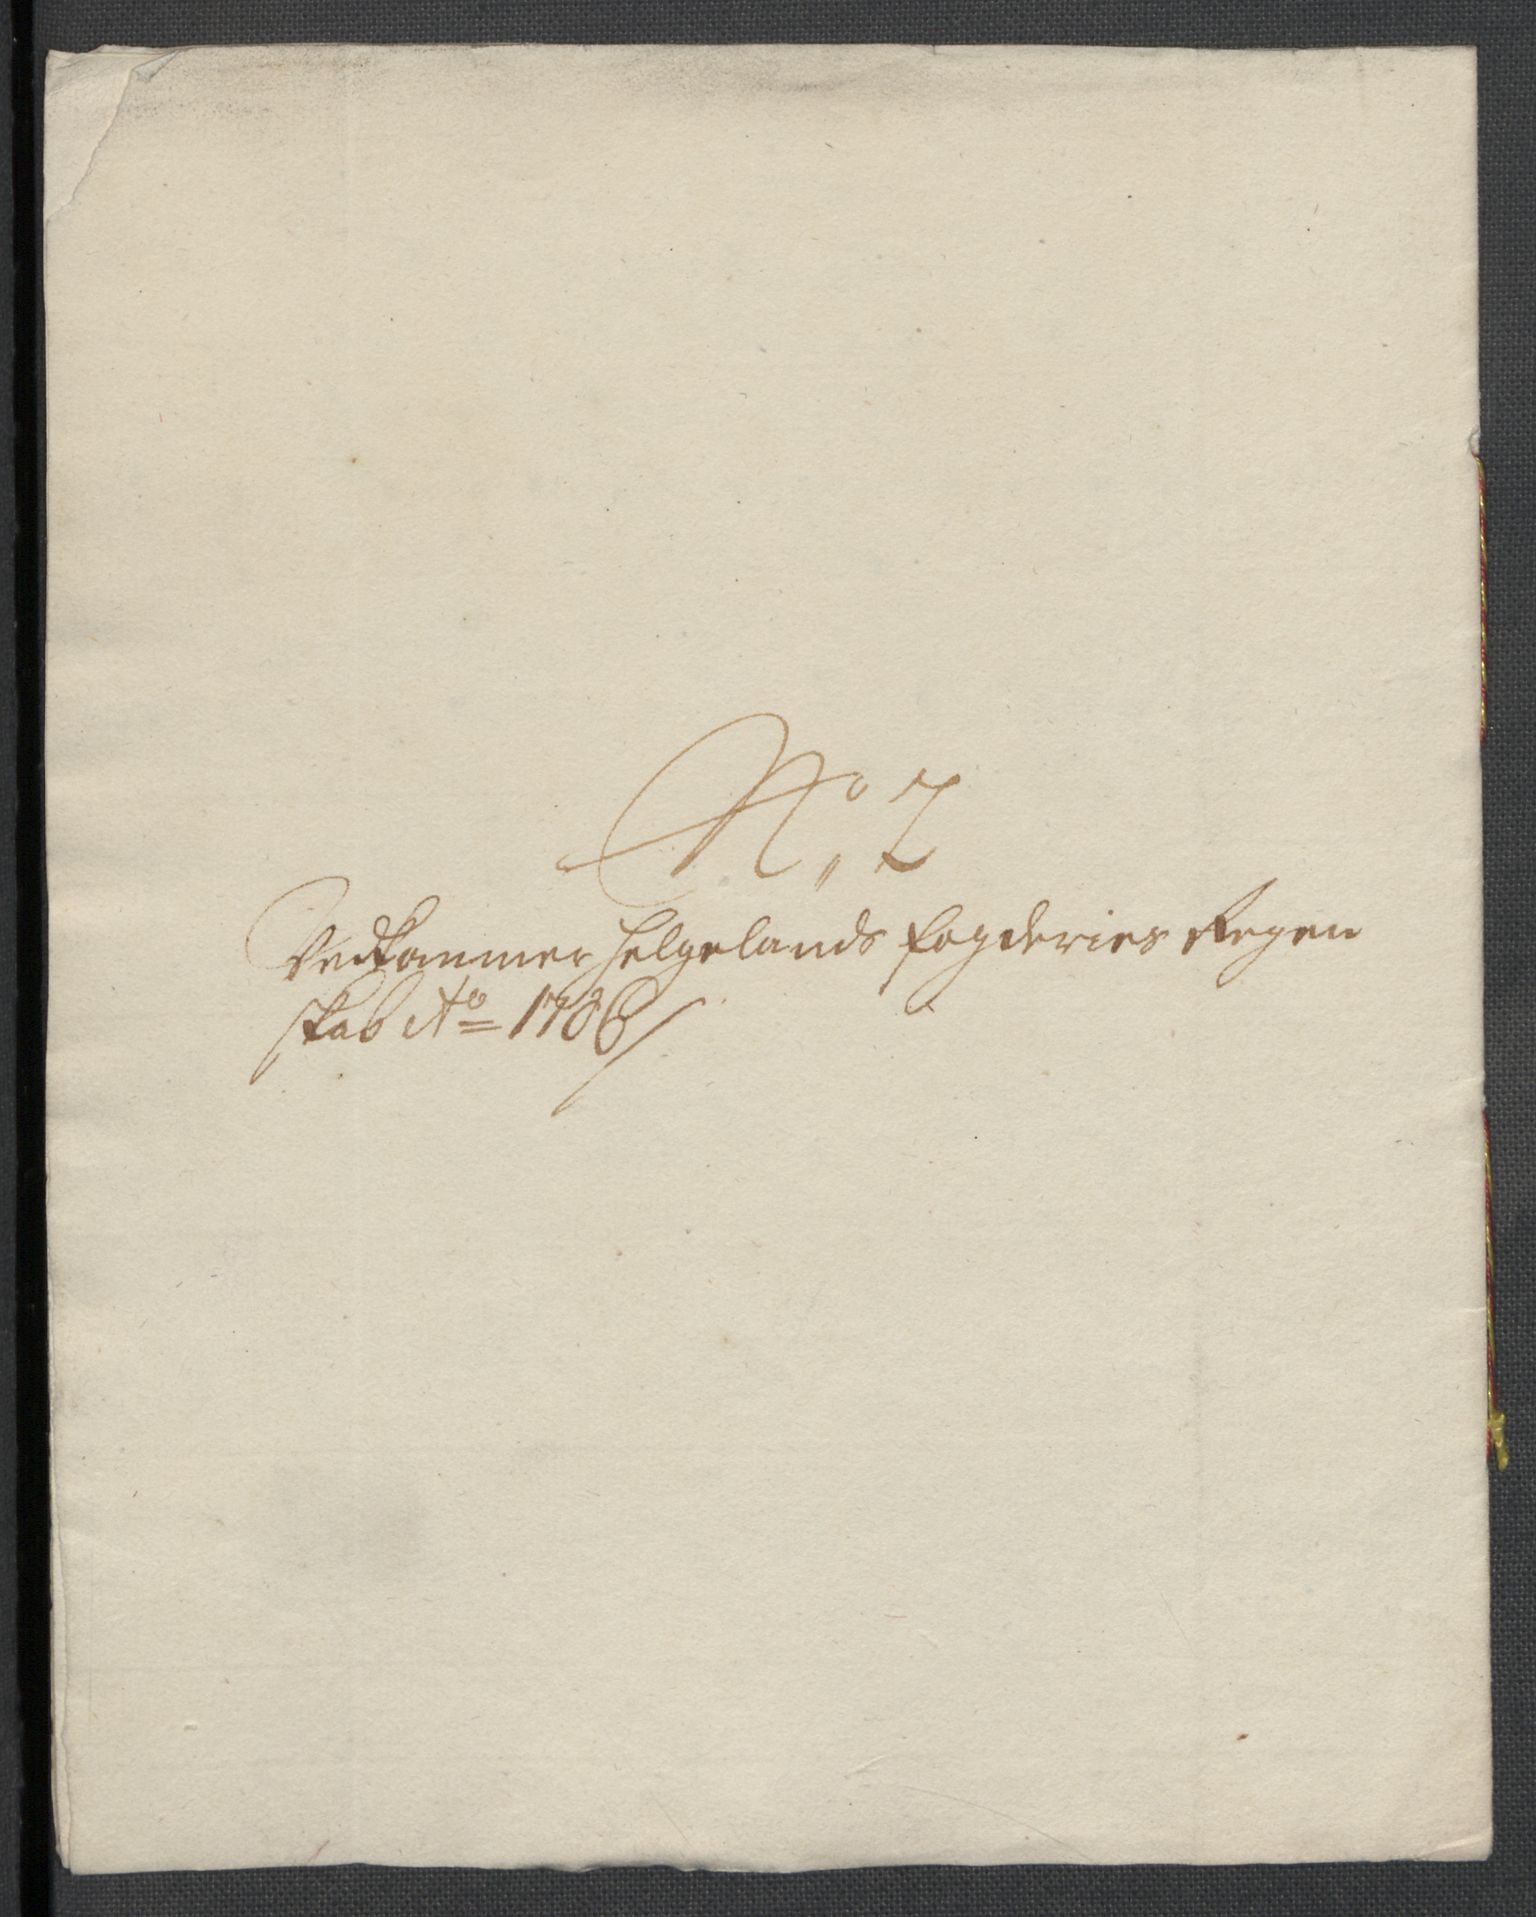 No. 2
Vedkommer Helgelands fogderies Regen
skab Ao 1706